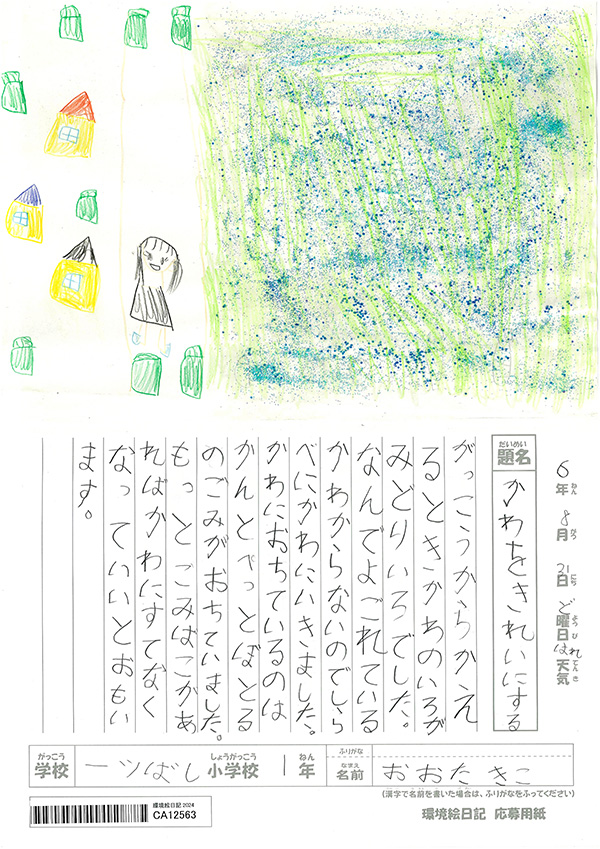 6年ねん 8月がつ 31日にち ど曜日ようび はれ天気てんき
題名だいめい かわをきれいにする
がっこうからかえ
るときかわのいろが
みどりいろでした。
なんでよごれている
かわからないのでしら
べにかわにいきました。
かわにおちているのは
かんとぺっとぼとる
のごみがおちていました。
もっとごみばこがあ
ればかわにすてなく
なっていいとおもい
ます。
がっこう 学校 一ツばし しょうがっこう 小学校 1 ねん 年 ふりがな なまえ 名前 おおた きこ
(漢字で名前を書いた場合は、ふりがなをふってください)
環境絵日記2024
CA12563
環境絵日記 応募用紙